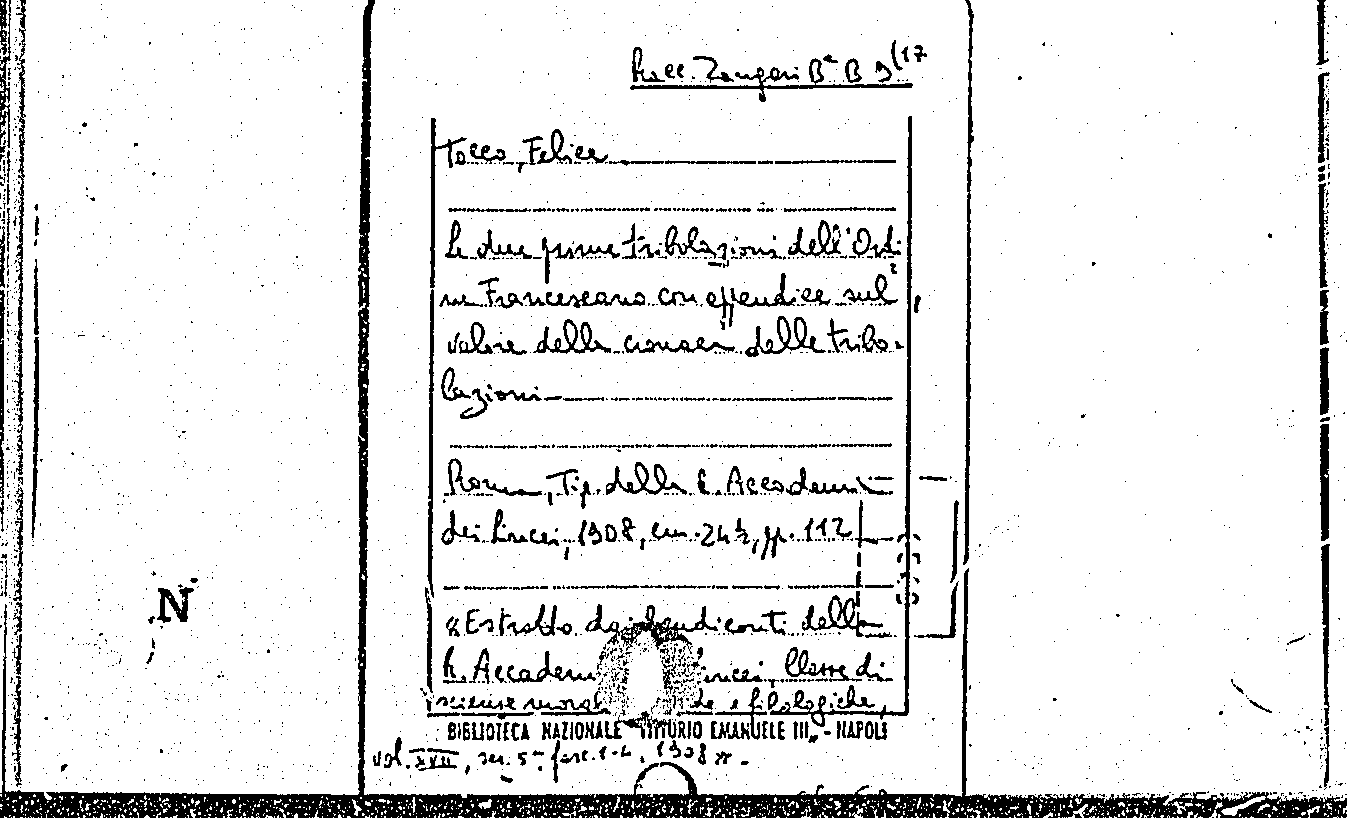 Racc. Zangari Bª B 9(17
Tocco, Felice
Le due prime tribolazioni dell'Ordi
ne Francescano con appendice sul
valore della cronaca delle tribo-
lazioni
Roma, Tip. della R. Accademia
dei Lincei, 1908, cm. 24½, pp. 112
«Estratto dai Rendiconti della
R. Accadem incei, Classe di
scienze moral he e filologiche,
BIBLIOTECA NAZIONALE "VITTORIO EMANUELE III" - NAPOLI
vol. XVII, ser. 5ª, fasc. 1-4, 1908».
N